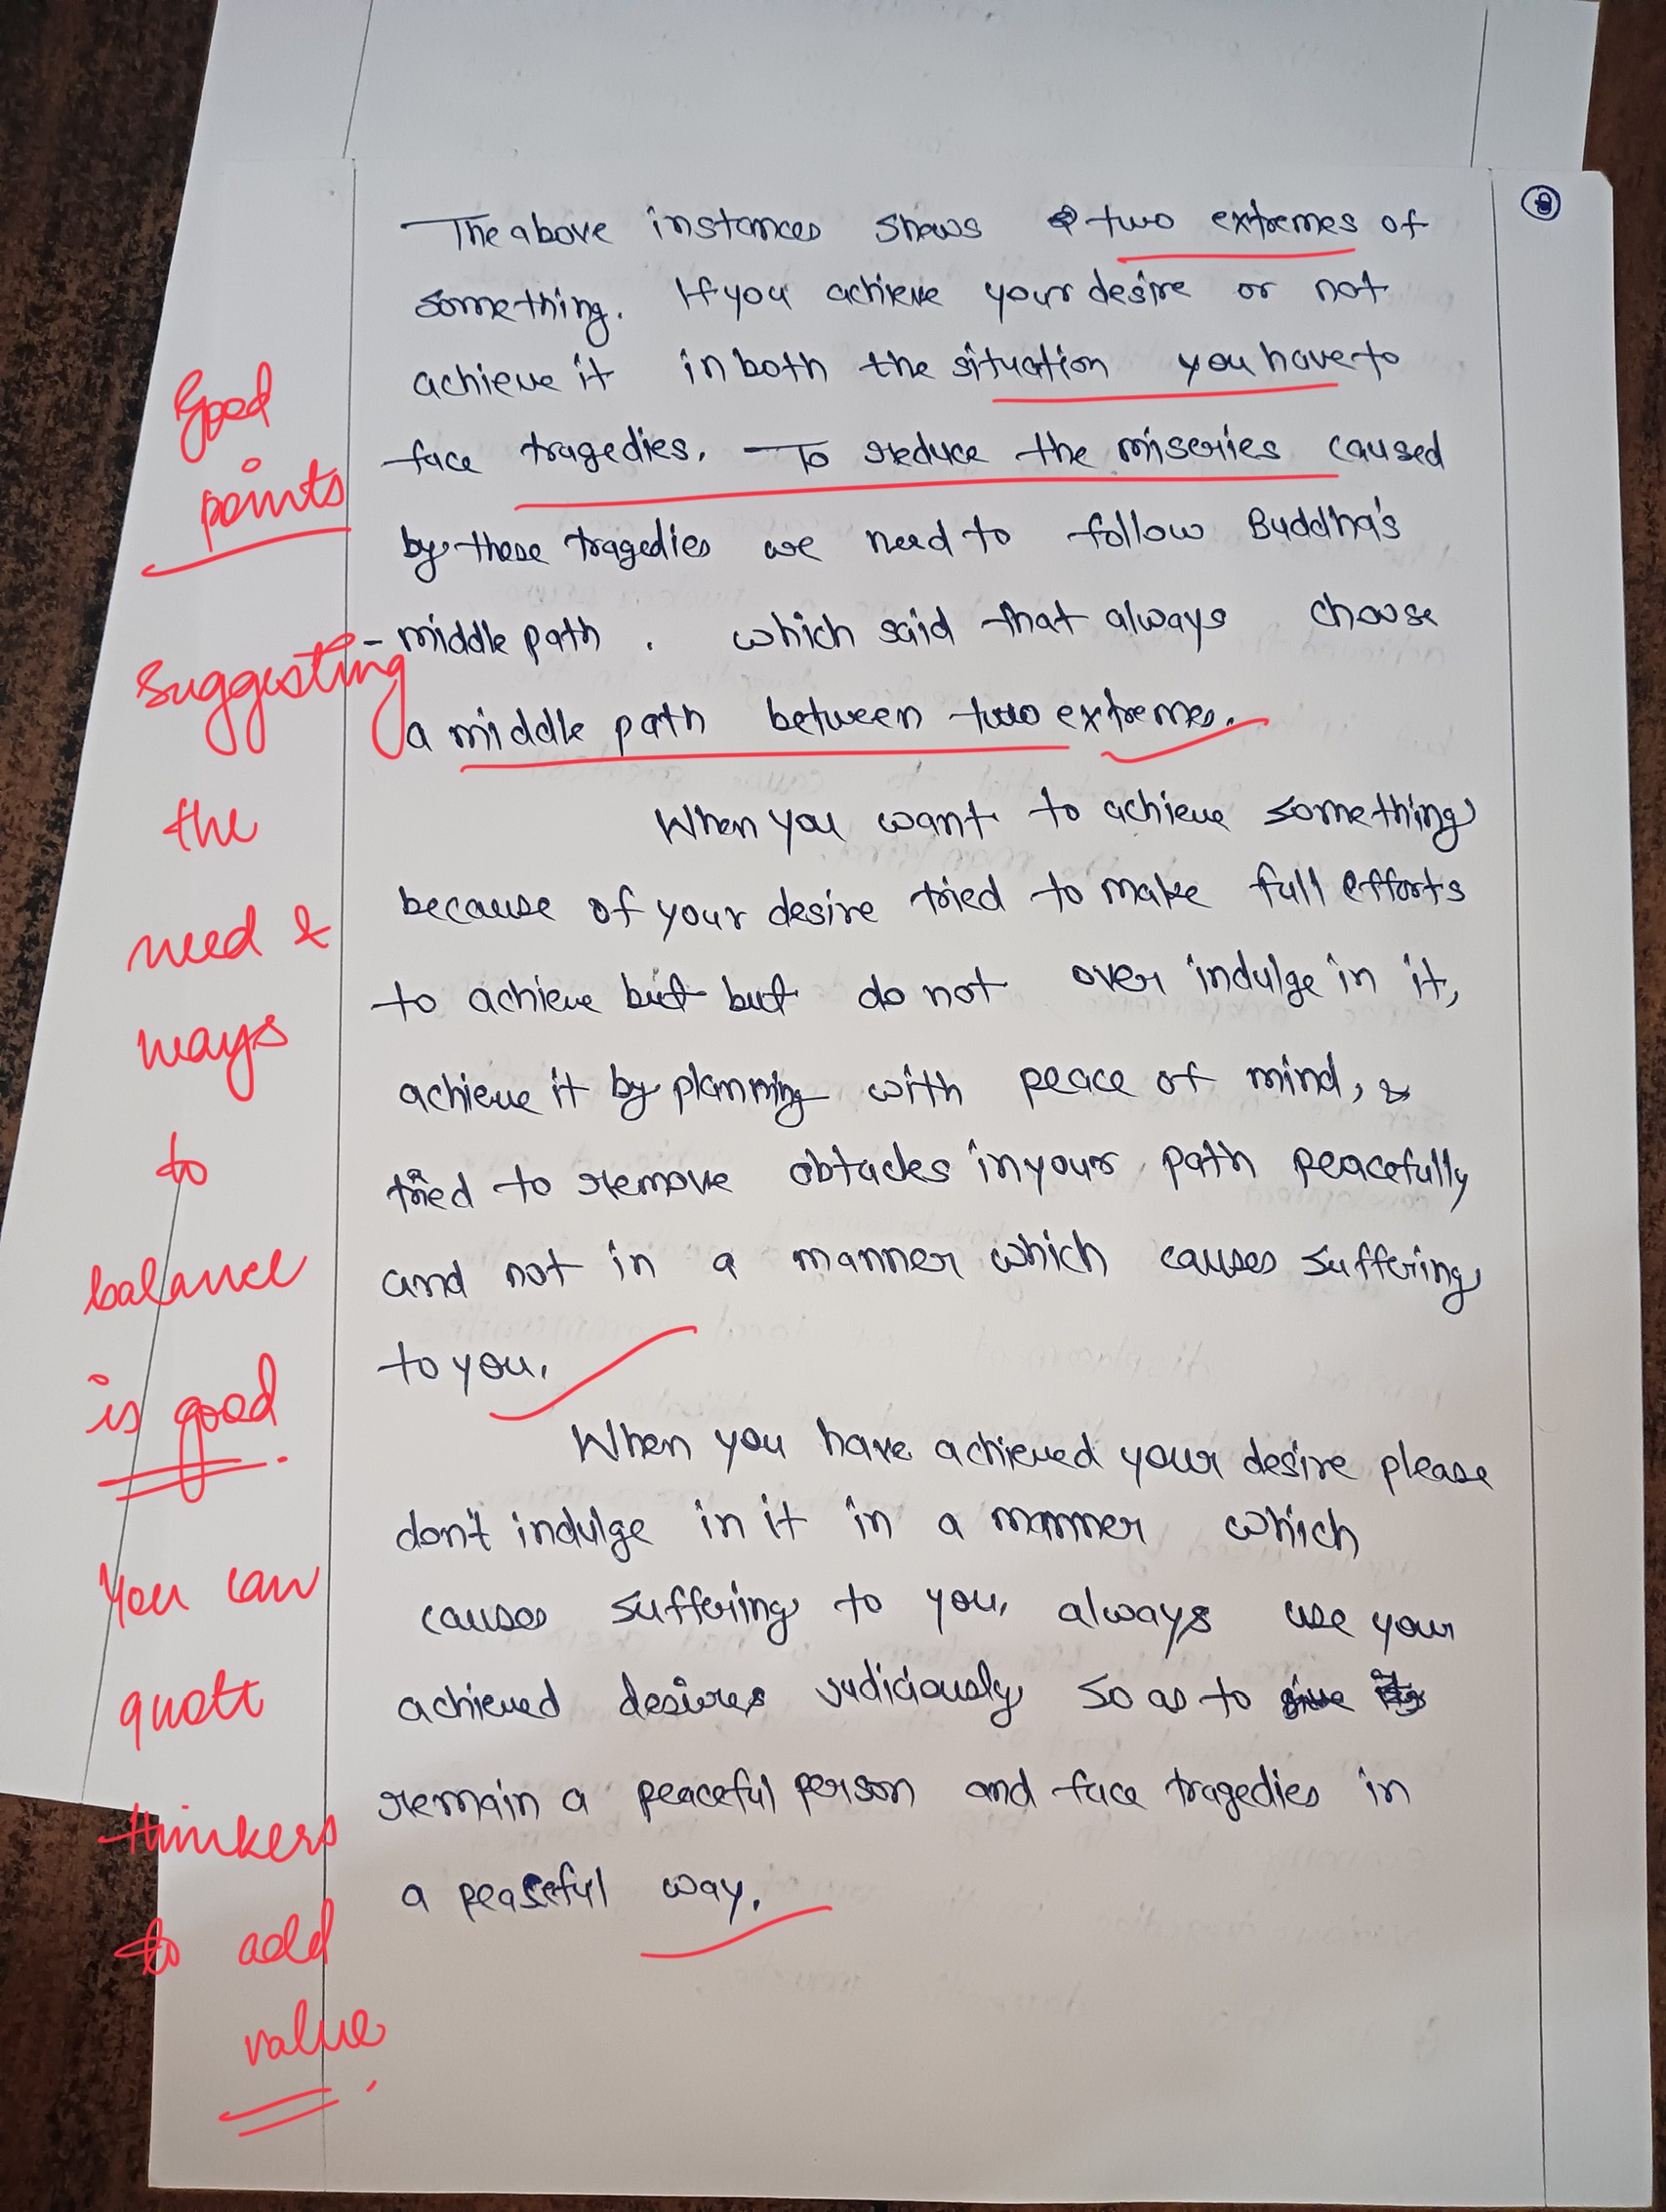 The above instances shows two extremes of
something. If you achieve your desire or not
achieve it in both the situation you have to
face tragedies. To reduce the miseries caused
by these tragedies we need to follow Buddha's
middle path. which said that always choose
a middle path between two extremes.
When you want to achieve something
because of your desire tried to make full efforts
to achieve but but do not over indulge in it,
achieve it by planning with peace of mind, &
tried to remove obtacles in your path peacefully
and not in a manner which causes suffering
to you.
When you have achieved your desire please
don't indulge in it in a manner which
causes suffering to you, always use your
achieved desires judiciously so as to give
remain a peaceful person and face tragedies in
a peaceful way.
Good
points
Suggesting
the
need &
ways
to
balance
is good.
You can
quote
thinkers
to add
value.